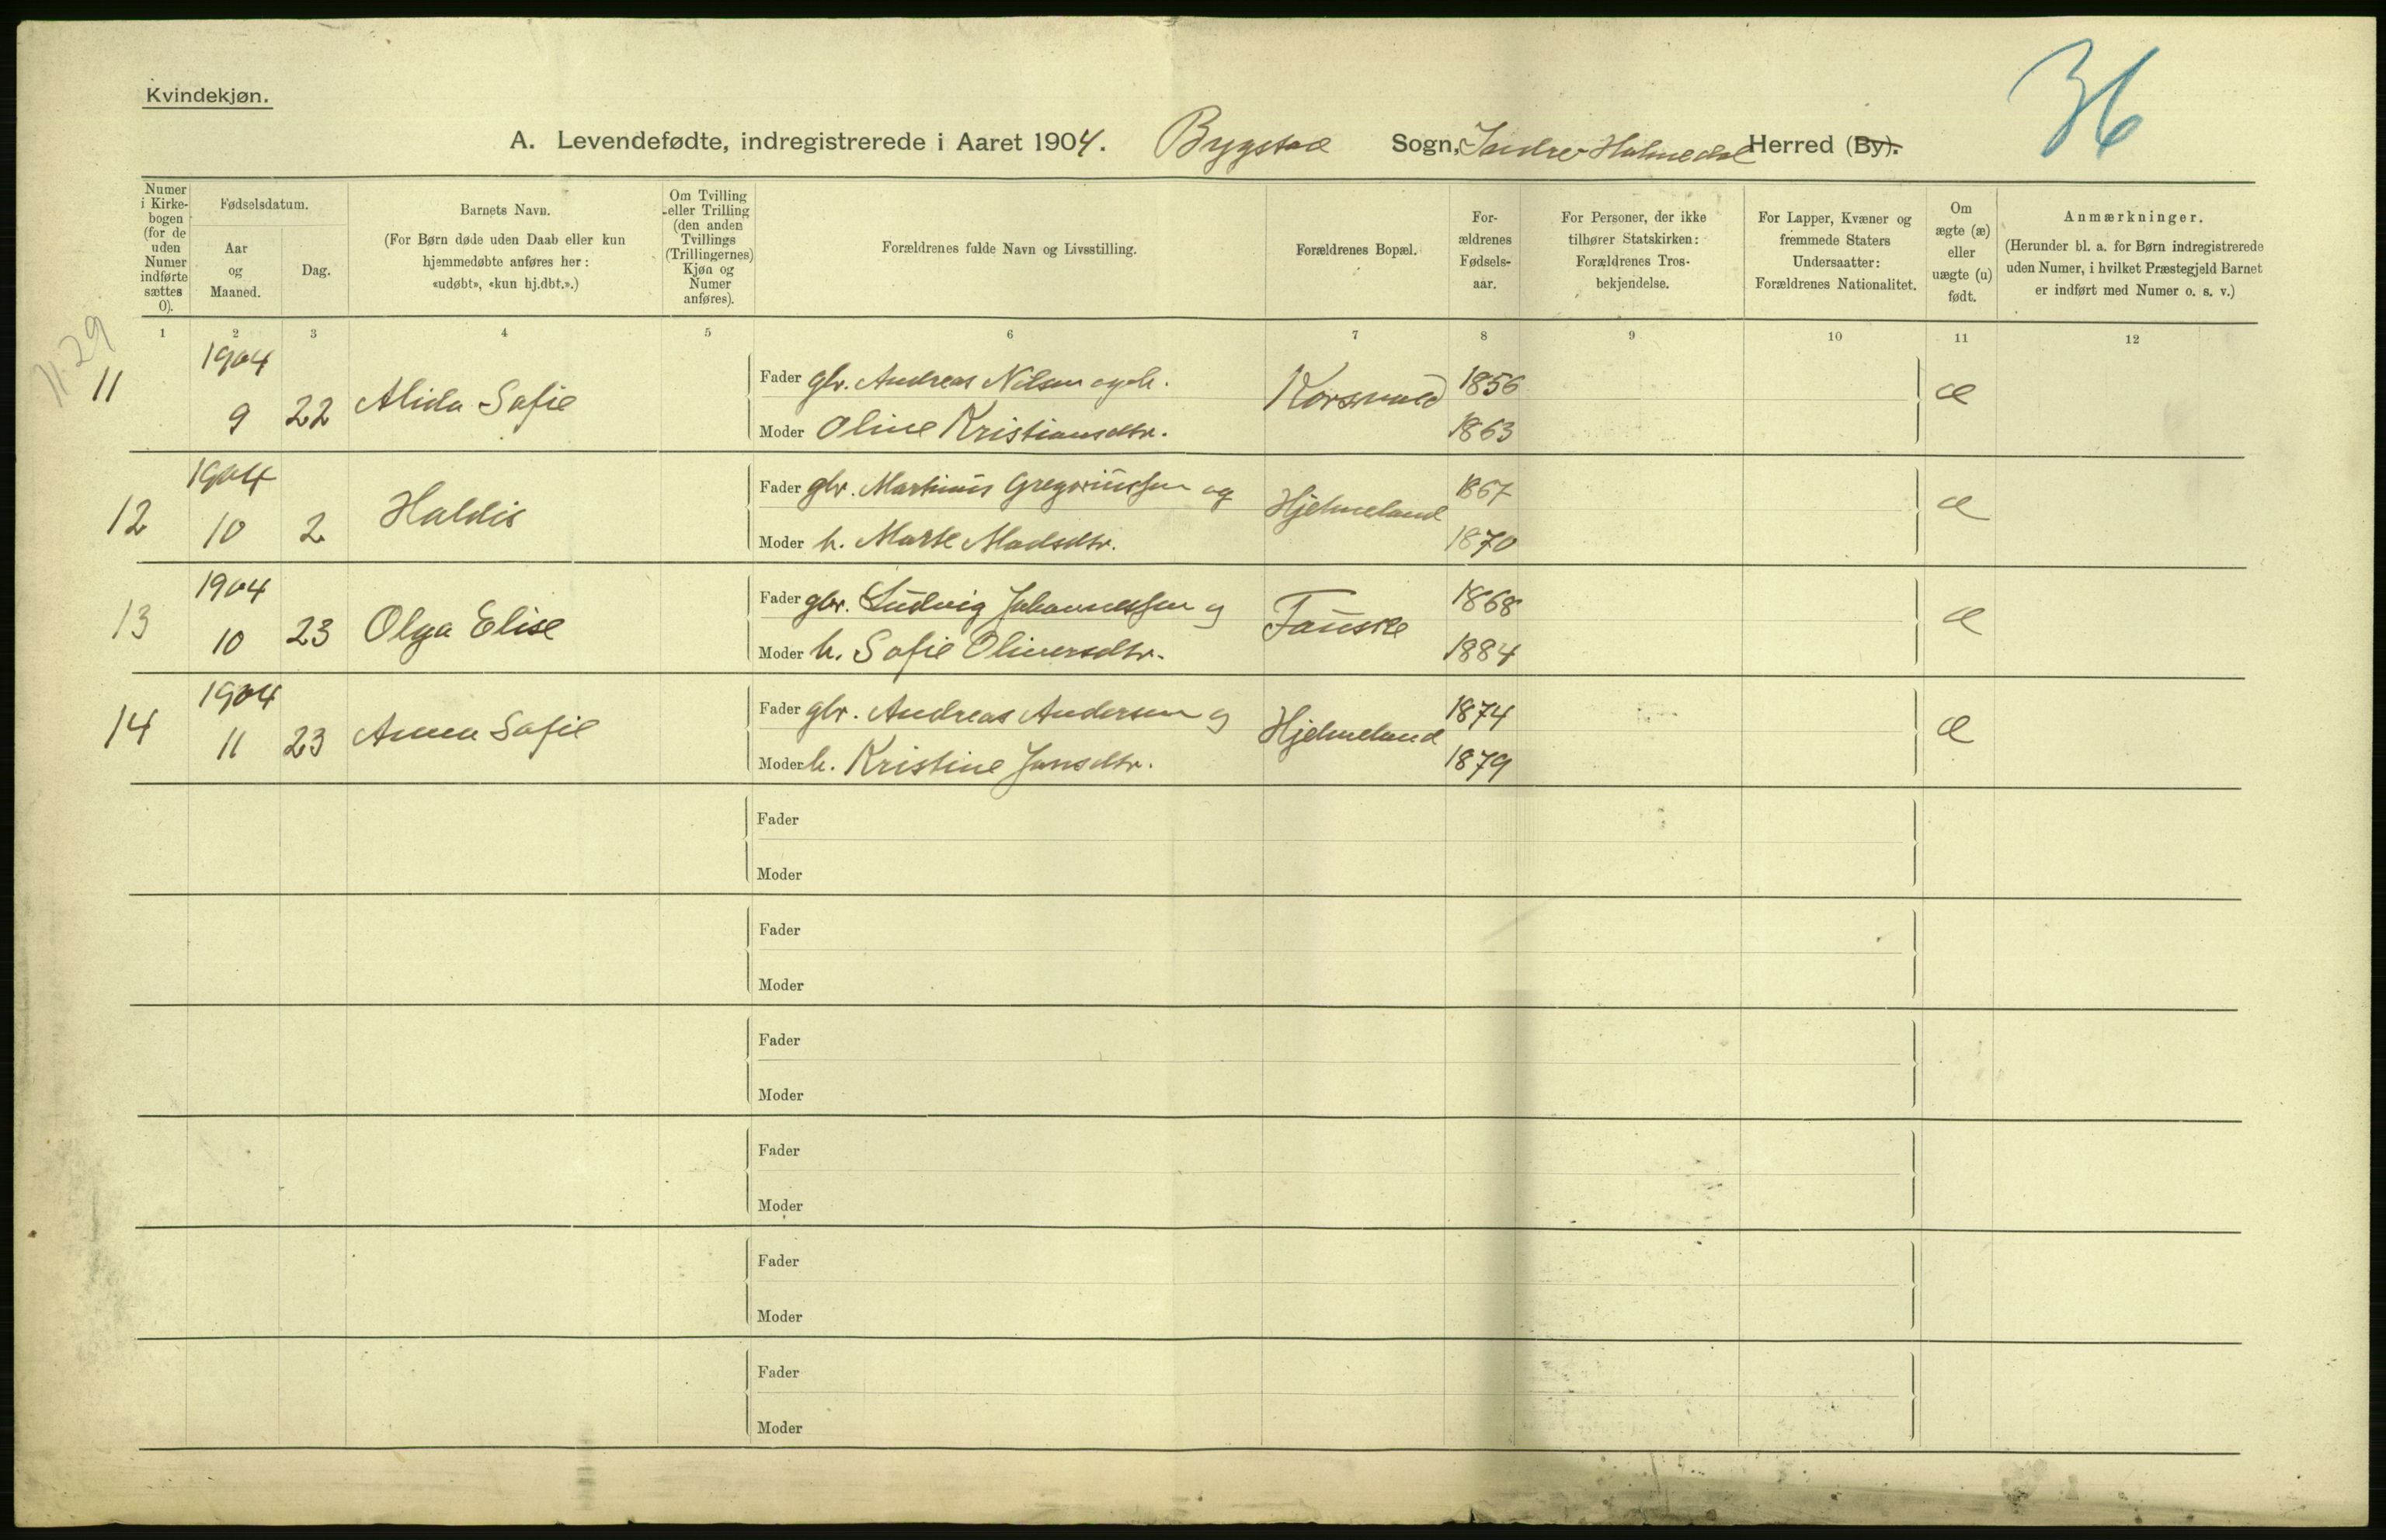 36
Kvindekjøn.
A. Levendefødte, indregistrerede i Aaret 1904. Bygstad Sogn, Indre Holmedal Herred (By).
Numer i Kirke-bogen (for de uden Numer indførte sættes 0).
Fødselsdatum.
Aar og Maaned.
Dag.
Barnets Navn.
(For Børn døde uden Daab eller kun hjemmedøbte anføres her: «udøbt», «kun hj.dbt.».)
Om Tvilling eller Trilling (den anden Tvillings (Trillingernes) Kjøn og Numer anføres).
Forældrenes fulde Navn og Livsstilling.
Forældrenes Bopæl.
For-ældrenes Fødsels-aar.
For Personer, der ikke tilhører Statskirken: Forældrenes Tros-bekjendelse.
For Lapper, Kvæner og fremmede Staters Undersaatter: Forældrenes Nationalitet.
Om ægte (æ) eller uægte (u) født.
Anmærkninger.
(Herunder bl. a. for Børn indregistrerede uden Numer, i hvilket Præstegjeld Barnet er indført med Numer o. s. v.)
1 2 3 4 5 6 7 8 9 10 11 12
11.29
11 1904 9 22 Alida Sofie Fader gbr. Andreas Nilsen og h. Korsvold 1856 æ
Moder Oline Kristiansdtr. 1863
12 1904 10 2 Haldis Fader gbr. Martinus Gregoriussen og Hjelmeland 1867 æ
Moder h. Marte Madsdtr. 1870
13 1904 10 23 Olga Elise Fader gbr. Ludvig Johannessen og Fauske 1868 æ
Moder h. Sofie Oliversdtr. 1884
14 1904 11 23 Anna Sofie Fader gbr. Andreas Andersen og Hjelmeland 1874 æ
Moder h. Kristine Jansdtr. 1879
Fader
Moder
Fader
Moder
Fader
Moder
Fader
Moder
Fader
Moder
Fader
Moder